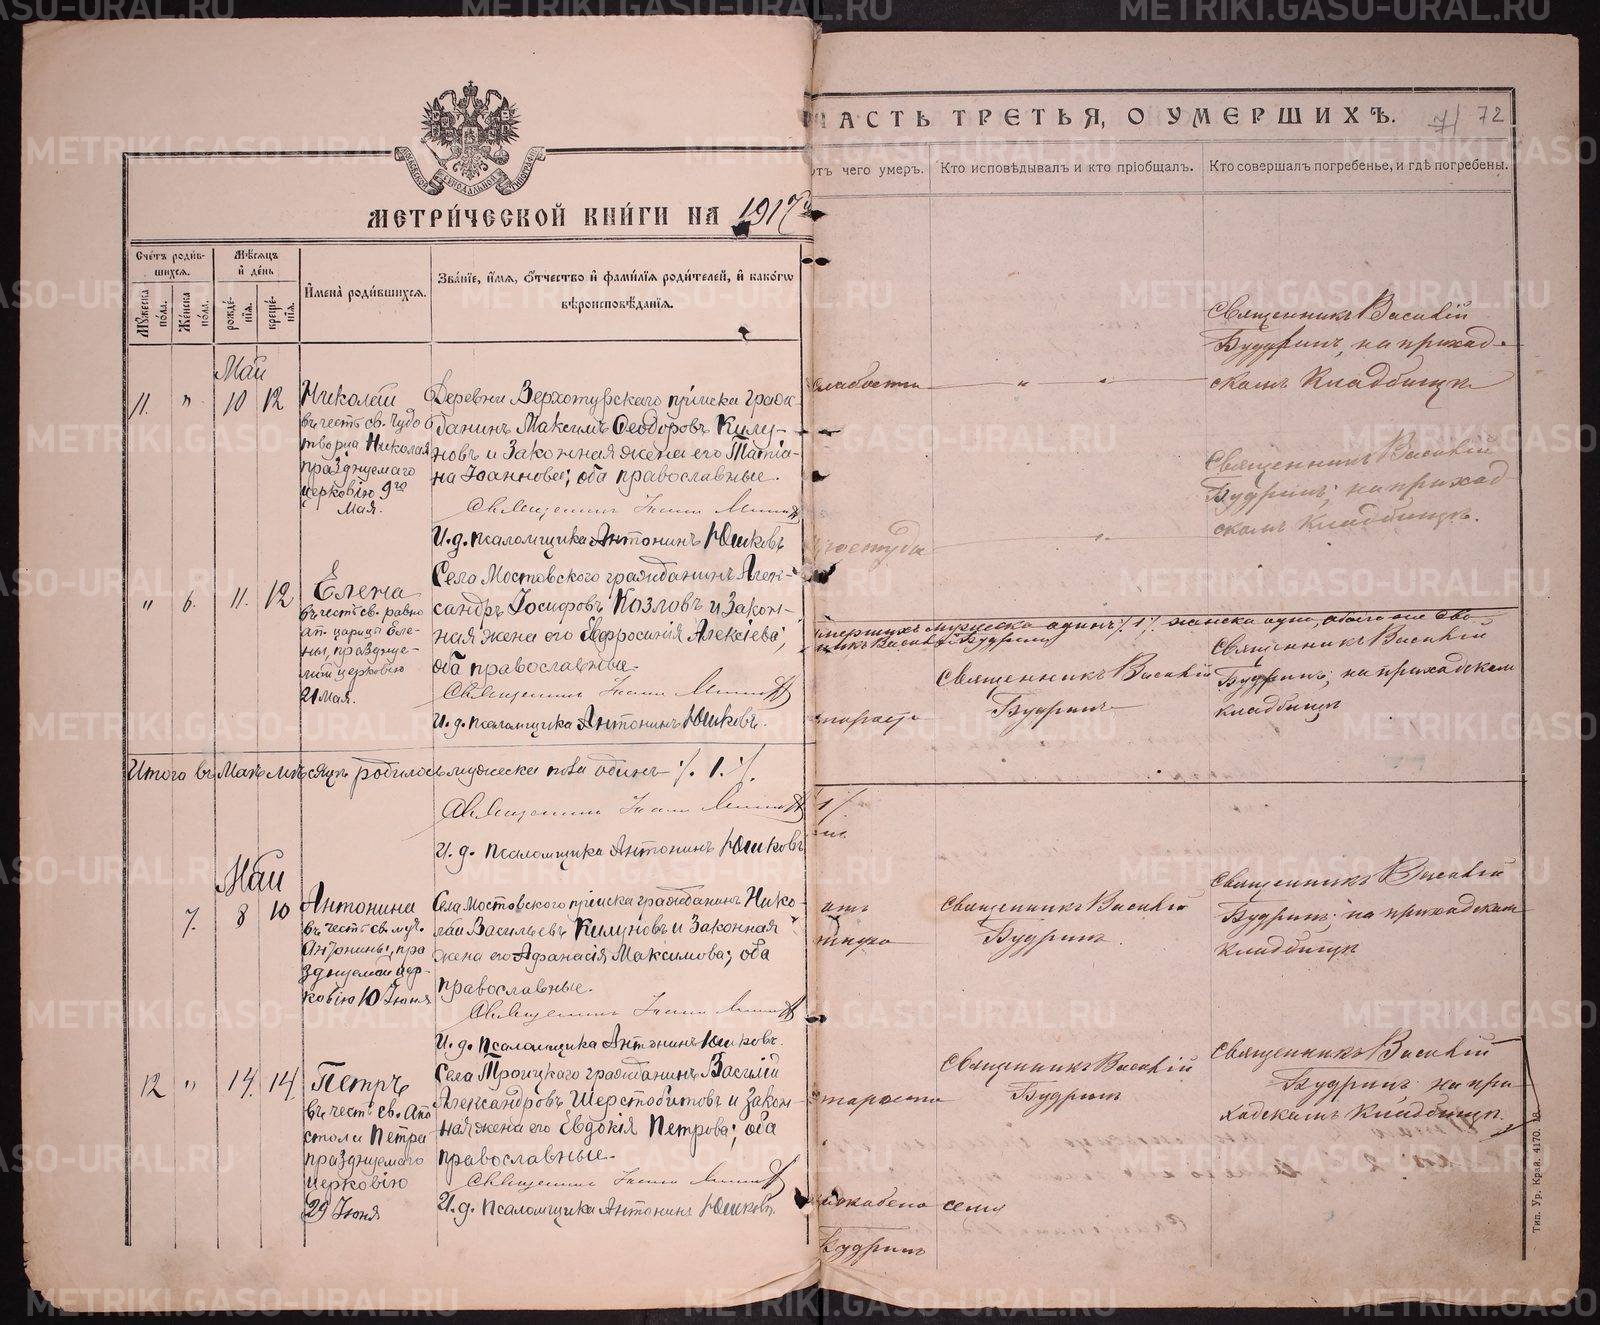 МЕТРИ́ЧЕСКОЙ КНИ́ГИ НА 1917
Сче́тъ роди́в-
шихся.
Мѣ́сяцъ
и̂ де́нь
Мужеска по́ла.
Же́нска по́ла.
рожде́-
нія.
креще́-
нія.
И҆мена̀ роди́вшихся.
Зва́ніе, и҆́мя, ѻ҆́тчество и҆ фами́лія роди́телей, и҆ како́гѡ
вѣроисповѣ́данія.
Май
11. " 10 12
Николай
въ честь св. Чудо
творца Николая
празднуемаго
церковію 9го
Мая.
Деревни Верхотурскаго пріиска граж-
данинъ Максимъ Ѳеодоровъ Килу-
новъ и законная жена его Татіа-
на Іоаннова; оба православные.
Священникъ Іоаннъ
И. д. псаломщика Антонинъ Юшковъ
" 6. 11. 12
Елена
въ честь св. равно
ап. царицы Еле-
ны, празднуе-
мой церковію
21 Мая.
Села Мостовского гражданинъ Алек-
сандръ Іосифовъ Козловъ и закон-
ная жена его Евфросинія Алексіева;
оба православные.
Священникъ Іоаннъ
И. д. псаломщика Антонинъ Юшковъ.
Итого въ Маѣ мѣсяцѣ родилось мужеска пола одинъ ./. 1 ./.
Священникъ Іоаннъ
И. д. псаломщика Антонинъ Юшковъ
Май
7. 8 10
Антонина
въ честь св. муч.
Антонины, пра
зднуемой цер-
ковію 10 Іюня
Села Мостовского пріиска гражданинъ Нико-
лай Васильевъ Килуновъ и законная
жена его Афанасія Максимова; оба
православные.
Священникъ Іоаннъ
И. д. псаломщика Антонинъ Юшковъ.
12 " 14. 14.
Петръ
въ честь св. Апо
стола Петра
празднуемаго
церковію
29 Іюня
Села Троицкого гражданинъ Василій
Александровъ Шерстобитовъ и закон-
ная жена его Евдокія Петрова; оба
православные.
Священникъ Іоаннъ
И. д. псаломщика Антонинъ Юшковъ
ЧАСТЬ ТРЕТЬЯ, О УМЕРШИХЪ. 71 72
отъ чего умеръ.
Кто исповѣдывалъ и кто пріобщалъ.
Кто совершалъ погребенье, и гдѣ погребены.
слабости " "
Священникъ Василій
Будринъ, на приход-
скомъ кладбищѣ
простуды "
Священникъ Василій
Будринъ; на приход
скомъ кладбищѣ.
умершихъ мужеска одинъ /. 1 /. женска одна, обоего же два
Василій Будринъ
старости
Священникъ Василій
Будринъ
Священникъ Василій
Будринъ; на приходскомъ
кладбищѣ
1 /.
отъ
Священникъ Василій
Будринъ.
Священникъ Василій
Будринъ; на приходскомъ
кладбищѣ
старости
Священникъ Василій
Будринъ
Священникъ Василій
Будринъ на при
ходскомъ кладбищѣ.
Будринъ
Тип. Ур. Край. 4170. 18.
METRIKI.GASO-URAL.RU